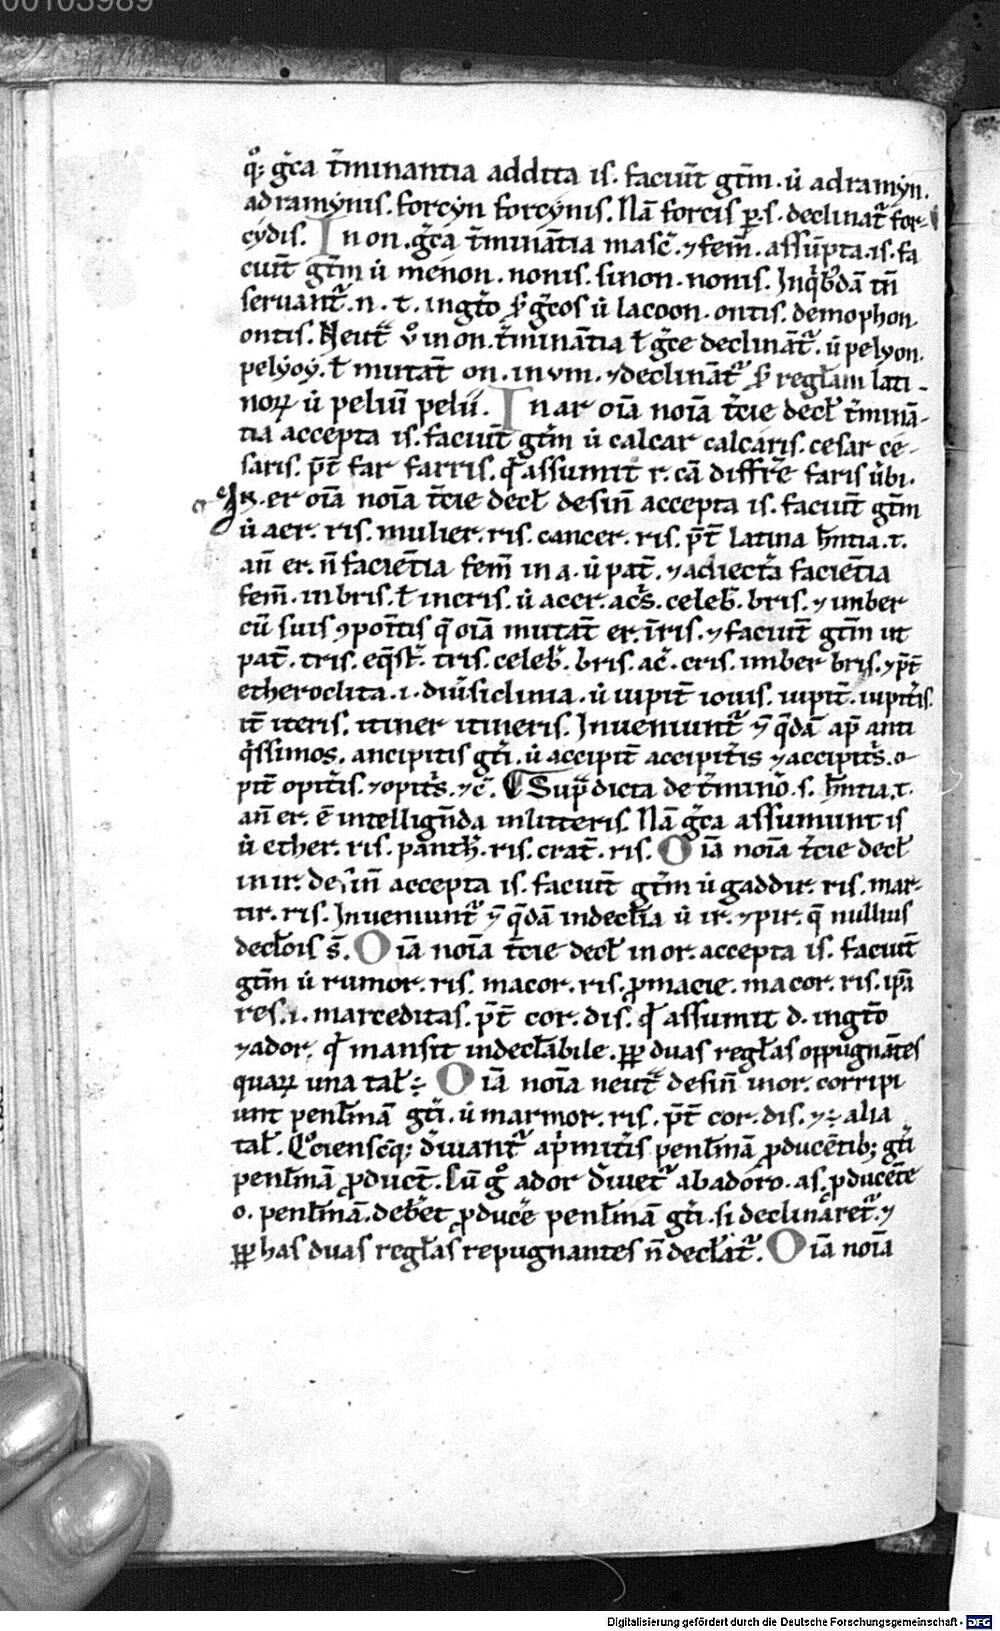 00103989
qͦ; gͣca t̄minantia addita is. faciūt gt̄m. u̇ adramẏn.
adramẏnis. forcẏn forcẏnis. Nā forcis ꝑ.s. declinat᷑ for-
cẏdis. In on. gͣca t̄minātia masc̄. ⁊ fem̄. assūpta. is. fa
ciūt gt̄m u̇ menon. nonis. sinon. nonis. Inqͥb᷒dā tn̄
seruant᷑. n. t. in gt̄o s̄ gͣcos u̇ lacoon. ontis. demophon.
ontis. Neut᷑ v̊ in on. t̄minātia ł gͣce declināt᷑. u̇ pelyon.
pelẏoẏ. ł mutāt on. in vm. ⁊ declināt᷑ s̄ regłam lati-
noꝝ u̇ peliū pelii. In ar oīa noīa t̄cie decł t̄minā-
tia accepta is. faciūt gt̄m u̇ calcar calcaris. cesar ce-
saris. p̄t far farris. qd̄ assumit r. cā diffr̄e faris u̇bi.
In. er oīa noīa t̄cie decł desin̄ accepta is. faciūt gt̄m
u̇ aer. ris. mulier. ris. cancer. ris. p̄t latina hn̄tia. t.
an̄ er. n̄ faciētia fem̄ in a. u̇ pat̄. ⁊ adiectͣa faciētia
fem̄. in bris. ł in cris. u̇ acer. acs̄. celeb̄. bris. ⁊ imber
cū suis ꝯpoītis q̄ oīa mutāt er. īris. ⁊ faciūt gt̄m ut
pat̄. tris. eq̄st̄. tris. celeb̄. bris. ac̄. cris. imber bris. ⁊ p̄t
etheroclita .i. diu̇siclinia. u̇ iupit̄ iouis. iupit̄. iupit̄is.
it̄ iteris. itiner itineris. Inueniunt᷑ ⁊̄ q̄dā ap̄ anti
qͥssimos. ancipitis gt̄i. u̇ accipit̄ accipit̄is ⁊ accipits̄. o-
pit̄ opit̄is. ⁊ opits̄. ⁊ c̄. ¶ Supͣdicta de t̄mino᷒. s. hn̄tia. t.
an̄ er. ē intellign̄da in litteris. Nā gͣca assumunt is
u̇ ether. ris. panth̄. ris. crat̄. ris. Oīa noīa t̄cie decł
in ir. desin̄ accepta is. faciūt gt̄m u̇ gaddir. ris. mar-
tir. ris. Inueniunt᷑ ⁊̄ q̄dā indecłia u̇ ir. ⁊ pir. q̄ nullius
decłois s̄. Oīa noīa t̄cie decł in or. accepta is. faciūt
gt̄m u̇ rumor. ris. macor. ris. ꝓ macie. macor. ris. ip̄a
res .i. marceditas. p̄t cor. dis. qd̄ assumit d. in gt̄o
⁊ ador. qd̄ mansit indecłabile. ꝓpͭ duas regłas oppugnātes
quaꝝ una tał ÷ Oīa noīa neut᷑ desin̄ in or. corripi
unt penłmā gt̄i. u̇ marmor. ris. p̄t cor. dis. ⁊ ÷ alia
tał. Qͦciensc̄q; d̄iuant᷑ a pͥmit̄is penłmā ꝓducētib; gt̄i
penłmā ꝓducūt. Cū gͦ ador d̄iuet᷑ ab adoro. as. ꝓducēte
o. penłmā. deb̄et ꝓduc̄e penłmā gt̄i. si declinaret᷑. ⁊
ꝓpͭ has duas regłas repugnantes n̄ decłat᷑. Oīa noīa
Digitalisierung gefördert durch die Deutsche Forschungsgemeinschaft - DFG